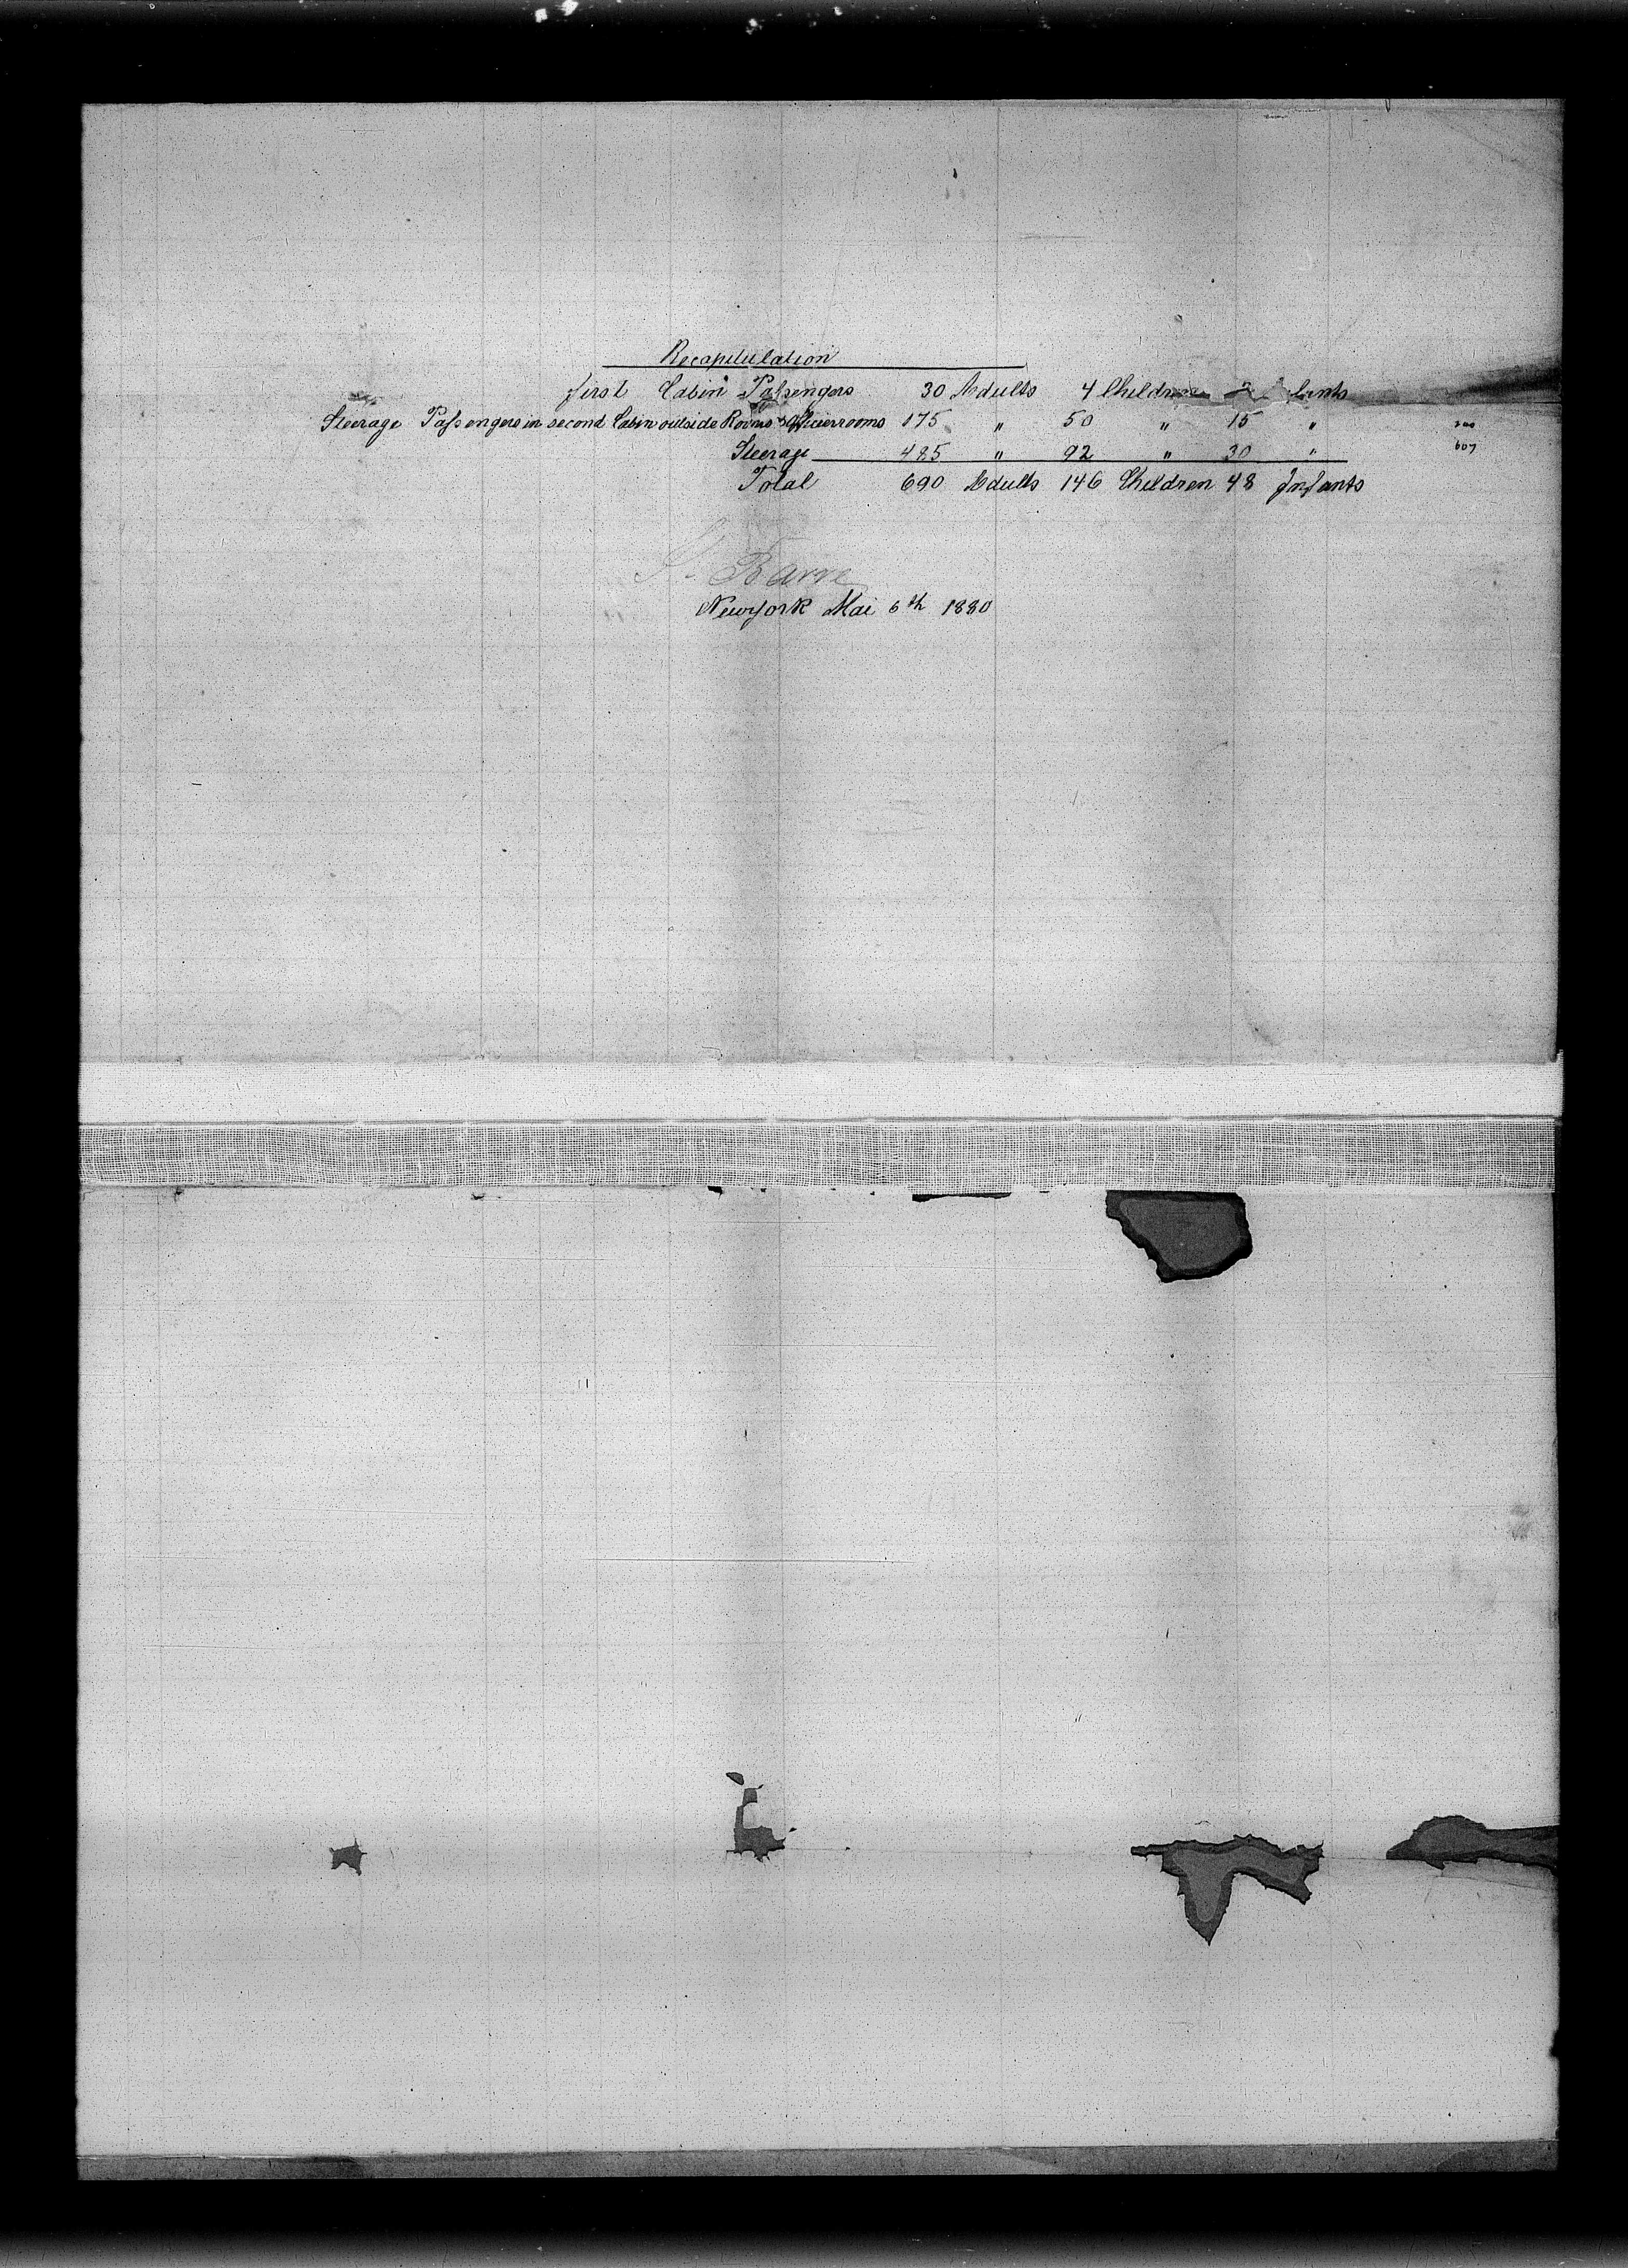 Recapitulation
first Cabin Passengers 30 Adults 4 Children fants
Steerage Passengers in second Cabin outside Rooms & Officierrooms 175 " 50 " 15 " 240
Steerage 485 " 92 " 30 " 607
Total 690 Adults 146 Children 48 Infants
Barre
New york Mai 6th 1880